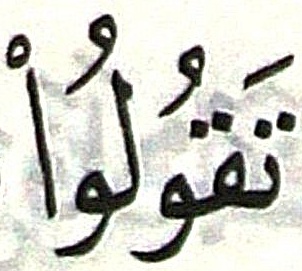 تَقُولُواْ